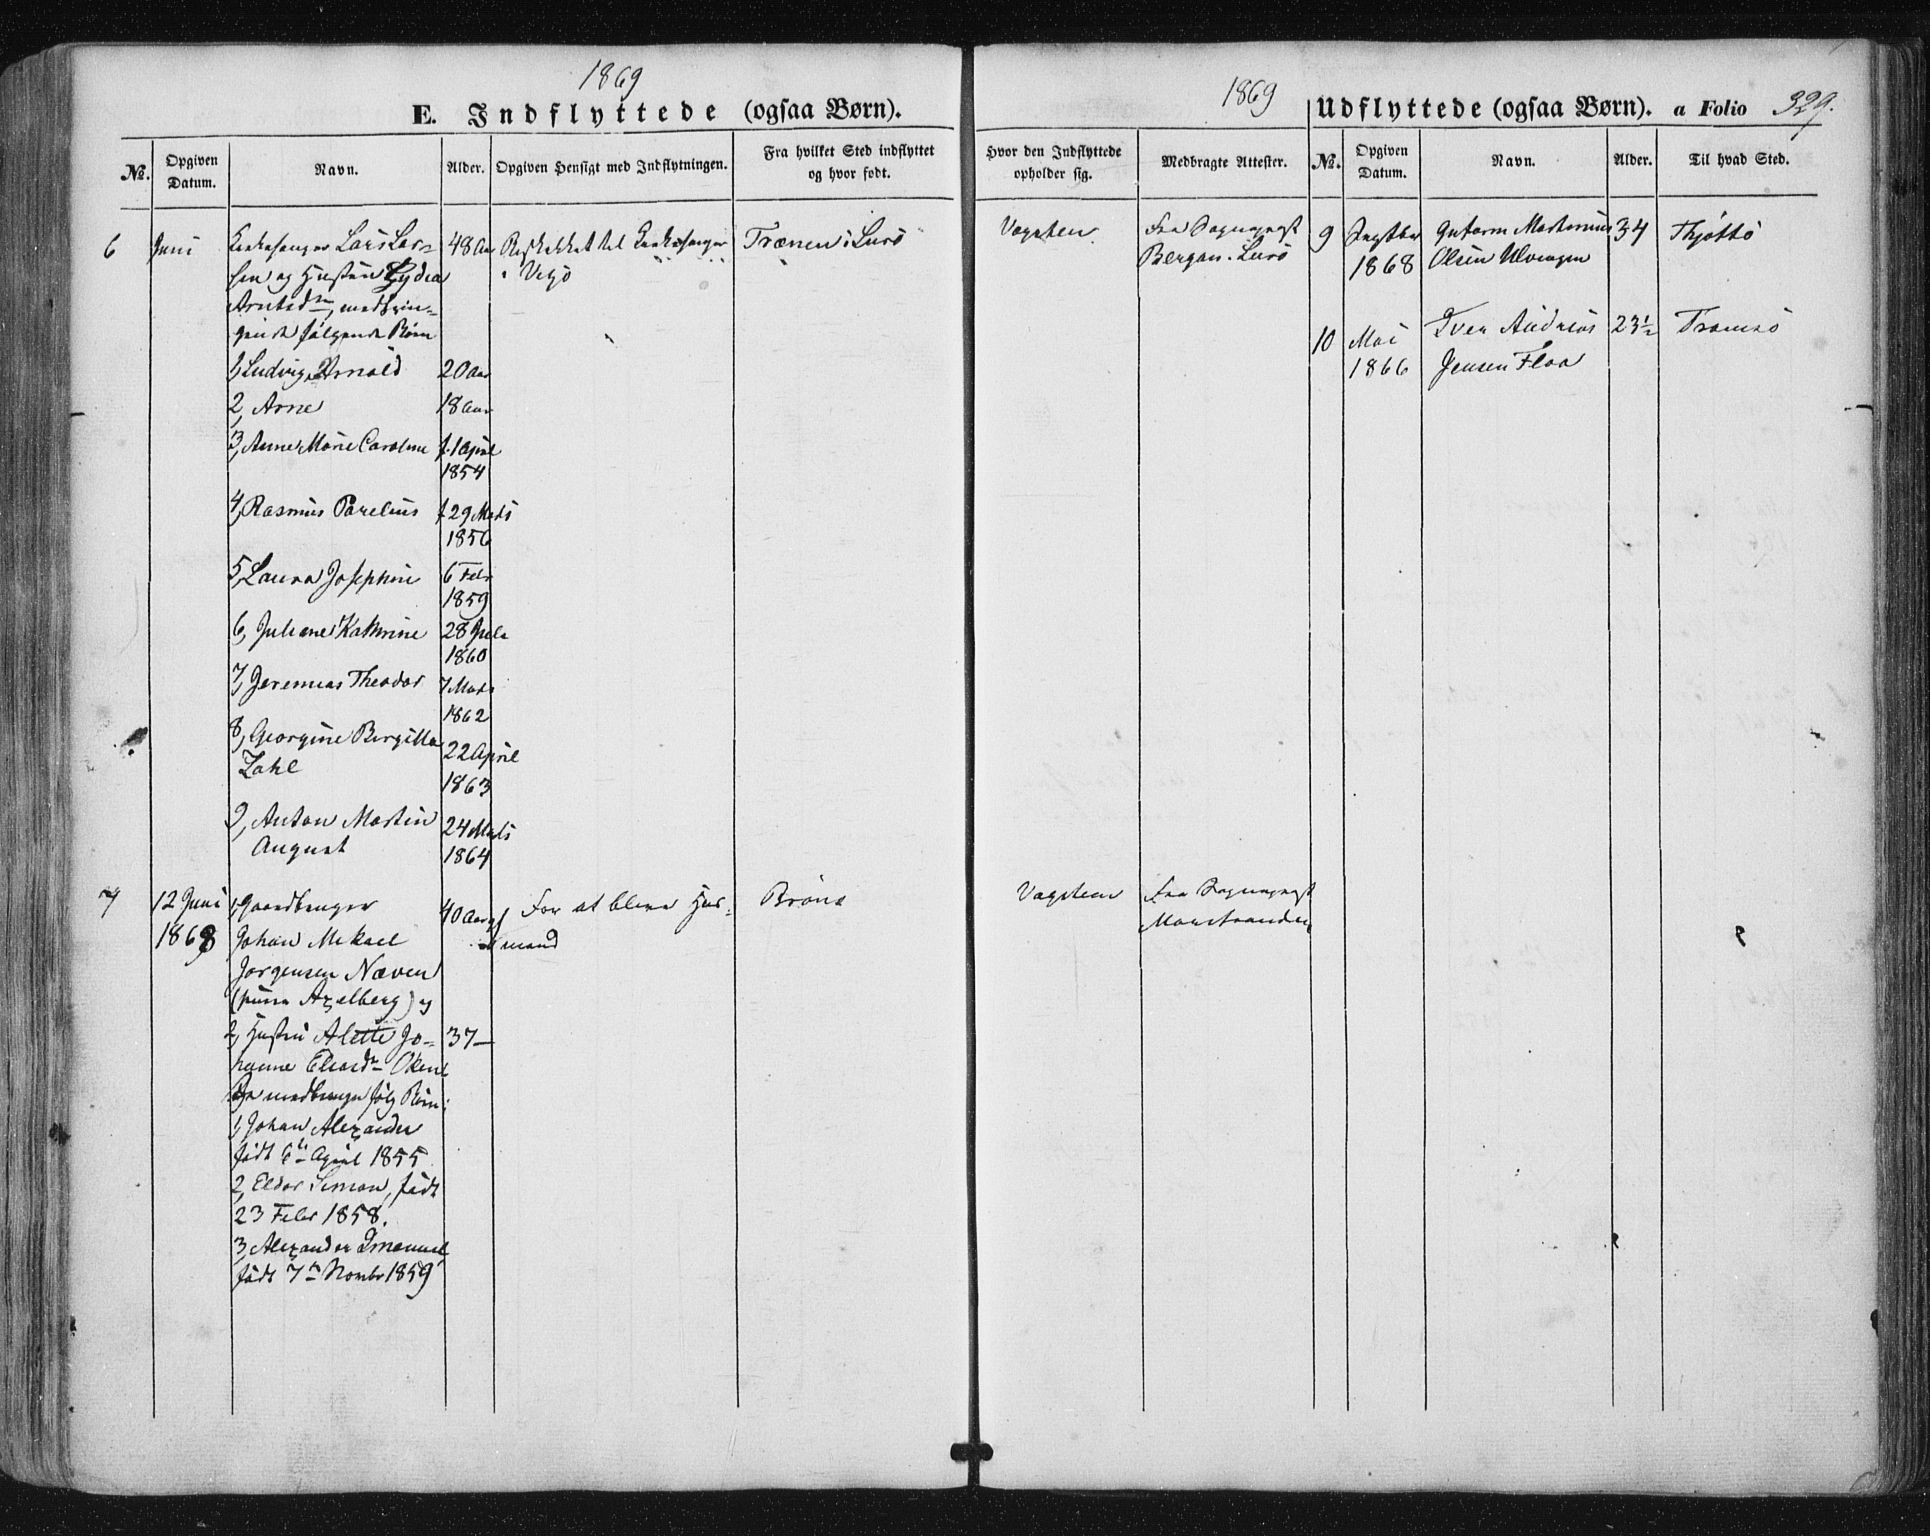 1869
E. Indflyttede (ogsaa Børn).
No.
Opgiven Datum.
Navn.
Alder.
Opgiven Hensigt med Indflytningen.
Fra hvilket Sted indflyttet og hvor født.
6
Juni
Kirkesanger Lars Lar-
sen og Hustru Lydia
Arntsdtr, medbrin-
gende følgende Børn
48 Aar
Beskikket til Kirkesanger
i Vegø
Trænen i Lurø
1, Ludvig Arnold
20 Aar
2, Arne
18 Aar
3, Anne Marie Caroline
f. 1 April
1854
4, Rasmus Parelius
f 29 Mads
1856
5, Laura Josephine
6 Febr
1859
6, Juliane Kathrine
28 Juli
1860
7, Jeremias Theodor
7 Mads
1862
8, Georgine Bergitta
Zahl
22 April
1863
9, Anton Martin
August
24 Mads
1864
7
12 Juni
1869
1, Gaardbruger
Johan Mikael
Jørgensen Næven
Axelberg) og
40 Aar
For at blive Huus-
mand
Brønø
2, Hustru Alette Jo-
hanne
37 —
medbringe følg Børn:
1, Johan Alexander
født 6te April 1855
2, Eldor Simon, født
23 Febr 1858.
3, Alexander Emanuel
født 7de Novmbr 1859
1869
Udflyttede (ogsaa Børn).
a Folio
329.
Hvor den Indflyttede opholder sig.
Medbragte Attester.
No.
Opgiven Datum.
Navn.
Alder.
Til hvad Sted.
Vegsten
Fra Sognepræst
Bergan. Lurø
9
Septbr
1868
Guttorm Martinius
Olsen Ulvingen
34
Thjøttø
10
Mai
1866
Iver Andreas
Jensen Floa
23½
Tromsø
Vegsten
Fra Sognepræst